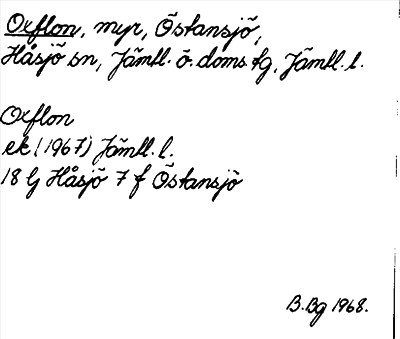 Oxflon, myr, Östansjö,
Håsjö sn, Jämtl. ö. doms fg, Jämtl. l.
Oxflon
ek (1967) Jämtl. l.
18 G Håsjö 7 f Östansjö
B.Bg 1968.